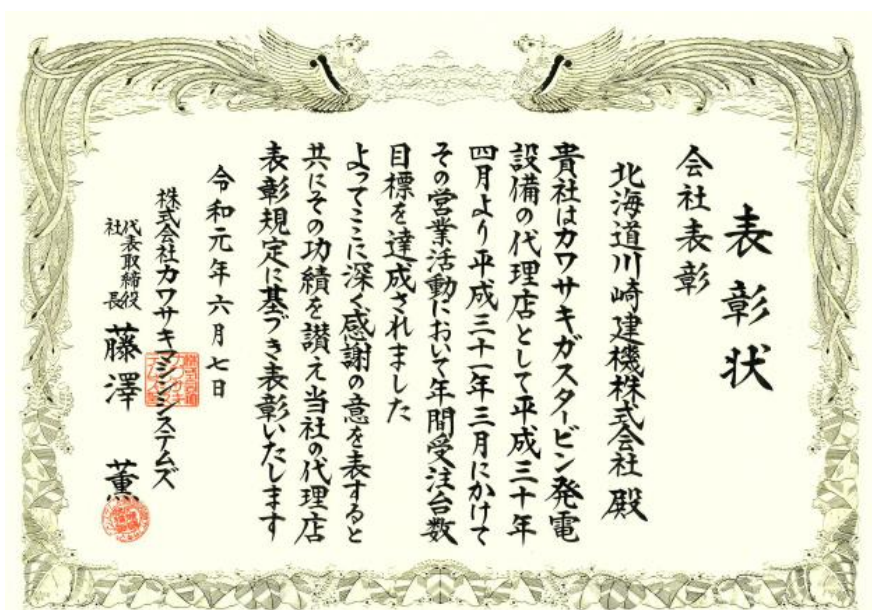 表彰状
会社表彰
北海道川崎建機株式会社 殿
貴社はカワサキガスタービン発電
設備の代理店として平成三十年
四月より平成三十一年三月にかけて
その営業活動において年間受注台数
目標を達成されました
よってここに深く感謝の意を表すると
共にその功績を讃え当社の代理店
表彰規定に基づき表彰いたします
令和元年六月七日
株式会社カワサキマシンシステムズ
代表取締役
社長
藤澤 薫